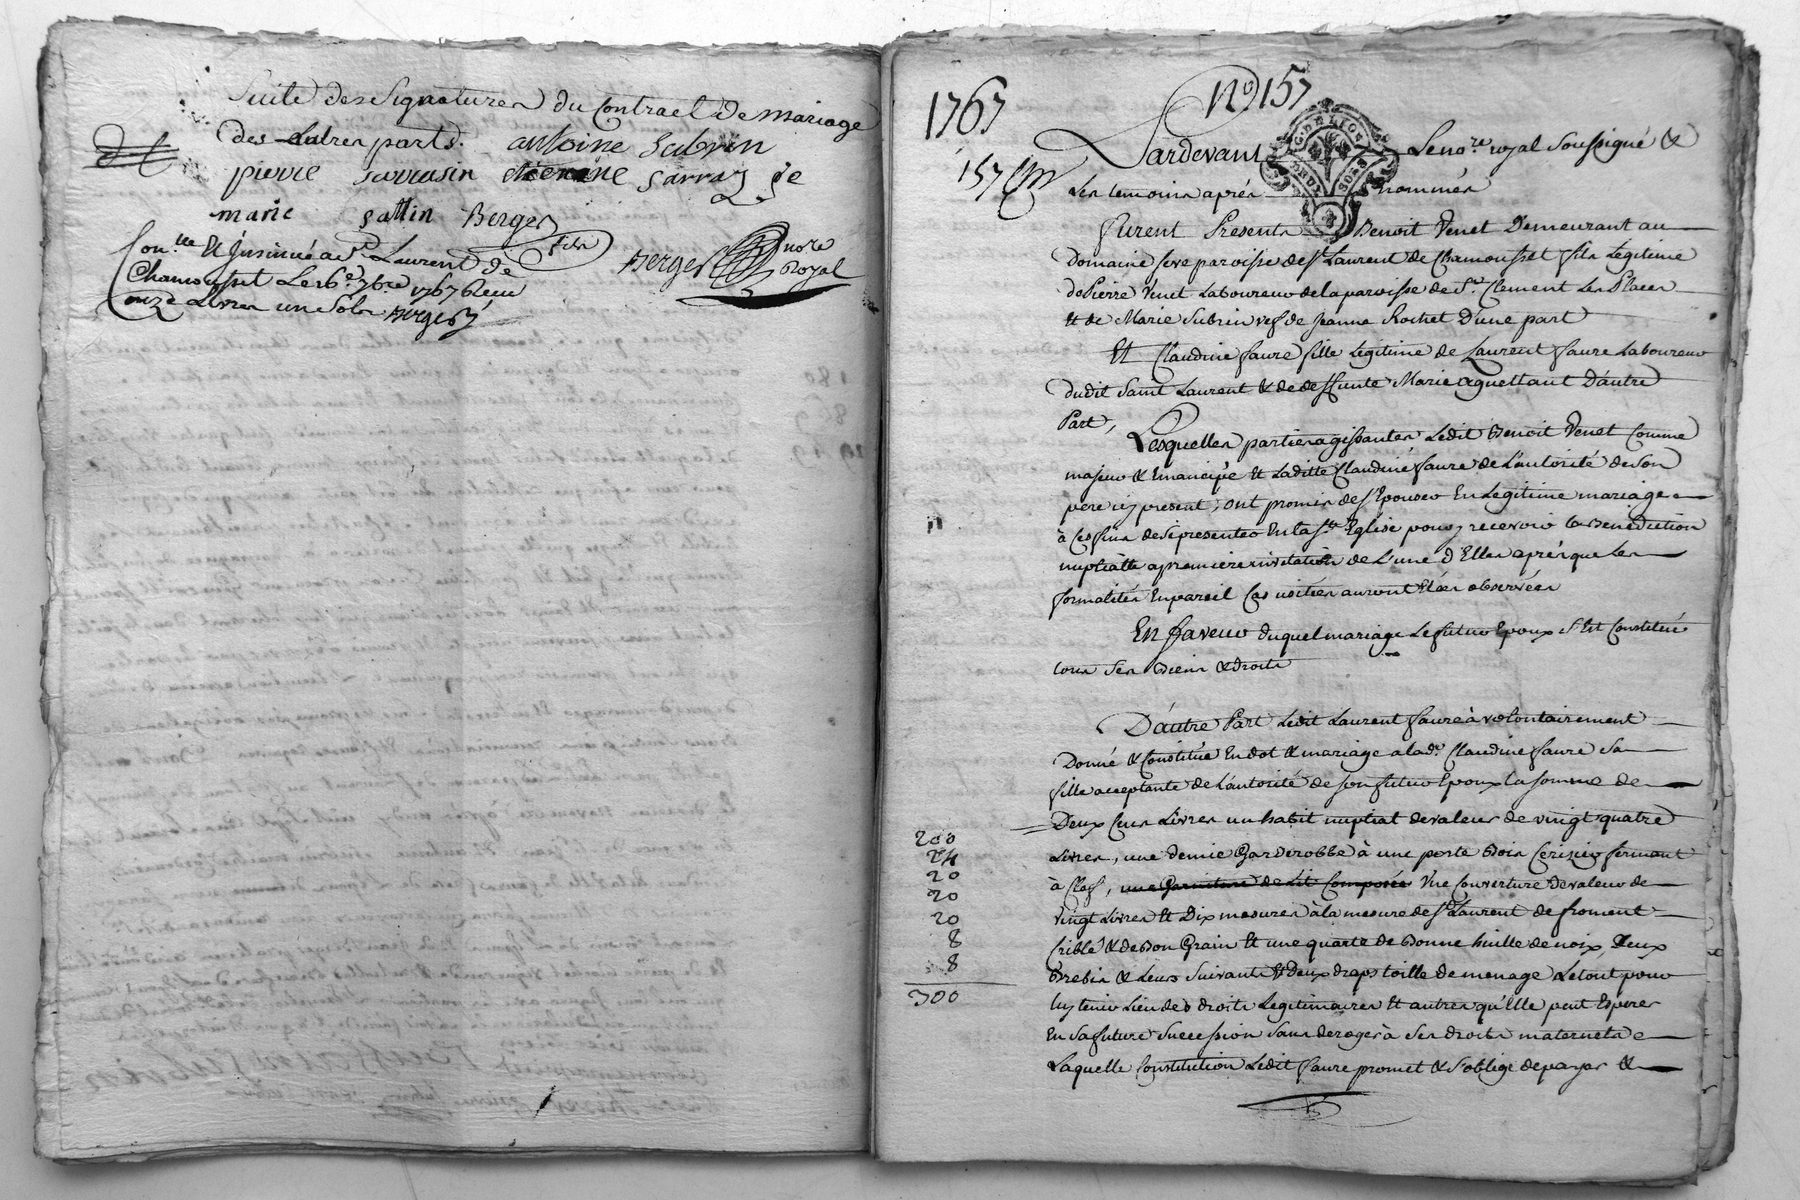 Suite des Signatures du Contract de mariage
des autres parts. antoine Subrin
pierre sarrasin etienne sarrazi de
marie sattin Berger
fils
Con.lle Et Insinué a St Laurent de
Chamousset Le 16e 7bre 1767 Receu
onze Livres un Sols Berger
Berger nore
Royal
1767
No 157
157
G. DE LYON
Pardevant Le no.re royal Soussigné &
Les temoins aprés nommés
furent Presents Benoit Venet Demeurant au
domaine feve paroisse de St Laurent de Chamousset fils Legitime
de Pierre Venet Laboureur de la paroisse de St Clement Les Places
Et de Marie Subrin vef de Jeanne Rochet D'une part
Et Claudine faure fille Legitime de Laurent faure Laboureur
dudit Saint Laurent & de deffunte Marie aguettant D'autre
Part,
Lesquelles parties agissantes Ledit Benoit Venet Comme
majeur & Emancipé Et Laditte Claudine faure de L'autorité de Son
pere icy present, ont promis de S'Epouser En Legitime mariage
à Ces fins de Se presenter En la Ste Eglise pour y recevoir la Benediction
nuptialle a premiere invitation de L'une d'Elles aprés que Les
formalités En pareil Cas usitées auront Etées observées
En faveur duquel mariage Le futur Epoux S'Est Constitué
tous Ses Biens & droits
D'autre Part Ledit Laurent faure à volontairement
Donné & Constitué En dot & mariage a lade. Claudine faure Sa
fille acceptante de L'autorité de Son futur Epoux la Somme de
Deux Cens Livres un habit nuptial de valeur de vingt quatre
200
Livres, une demie Garderobbe à une porte Bois Cerizier fermant
24
à Clef, une Garniture de Lit Composée Une Couverture de valeur de
20
vingt Livres Et Dix mesures à la mesure de St Laurent de froment
20
Criblé & de Bon Grain Et une quarte de Bonne huille de noix Deux
20
Brebis & Leurs Suivants Et Deux draps toille de menage Le tout pour
8
luy tenir Lieu de droits Legitimaires Et autres qu'Elle peut Esperer
8
300
En Sa future Succession Sans deroger à Ses droits maternels
Laquelle Constitution Ledit faure promet & S'oblige de payer &